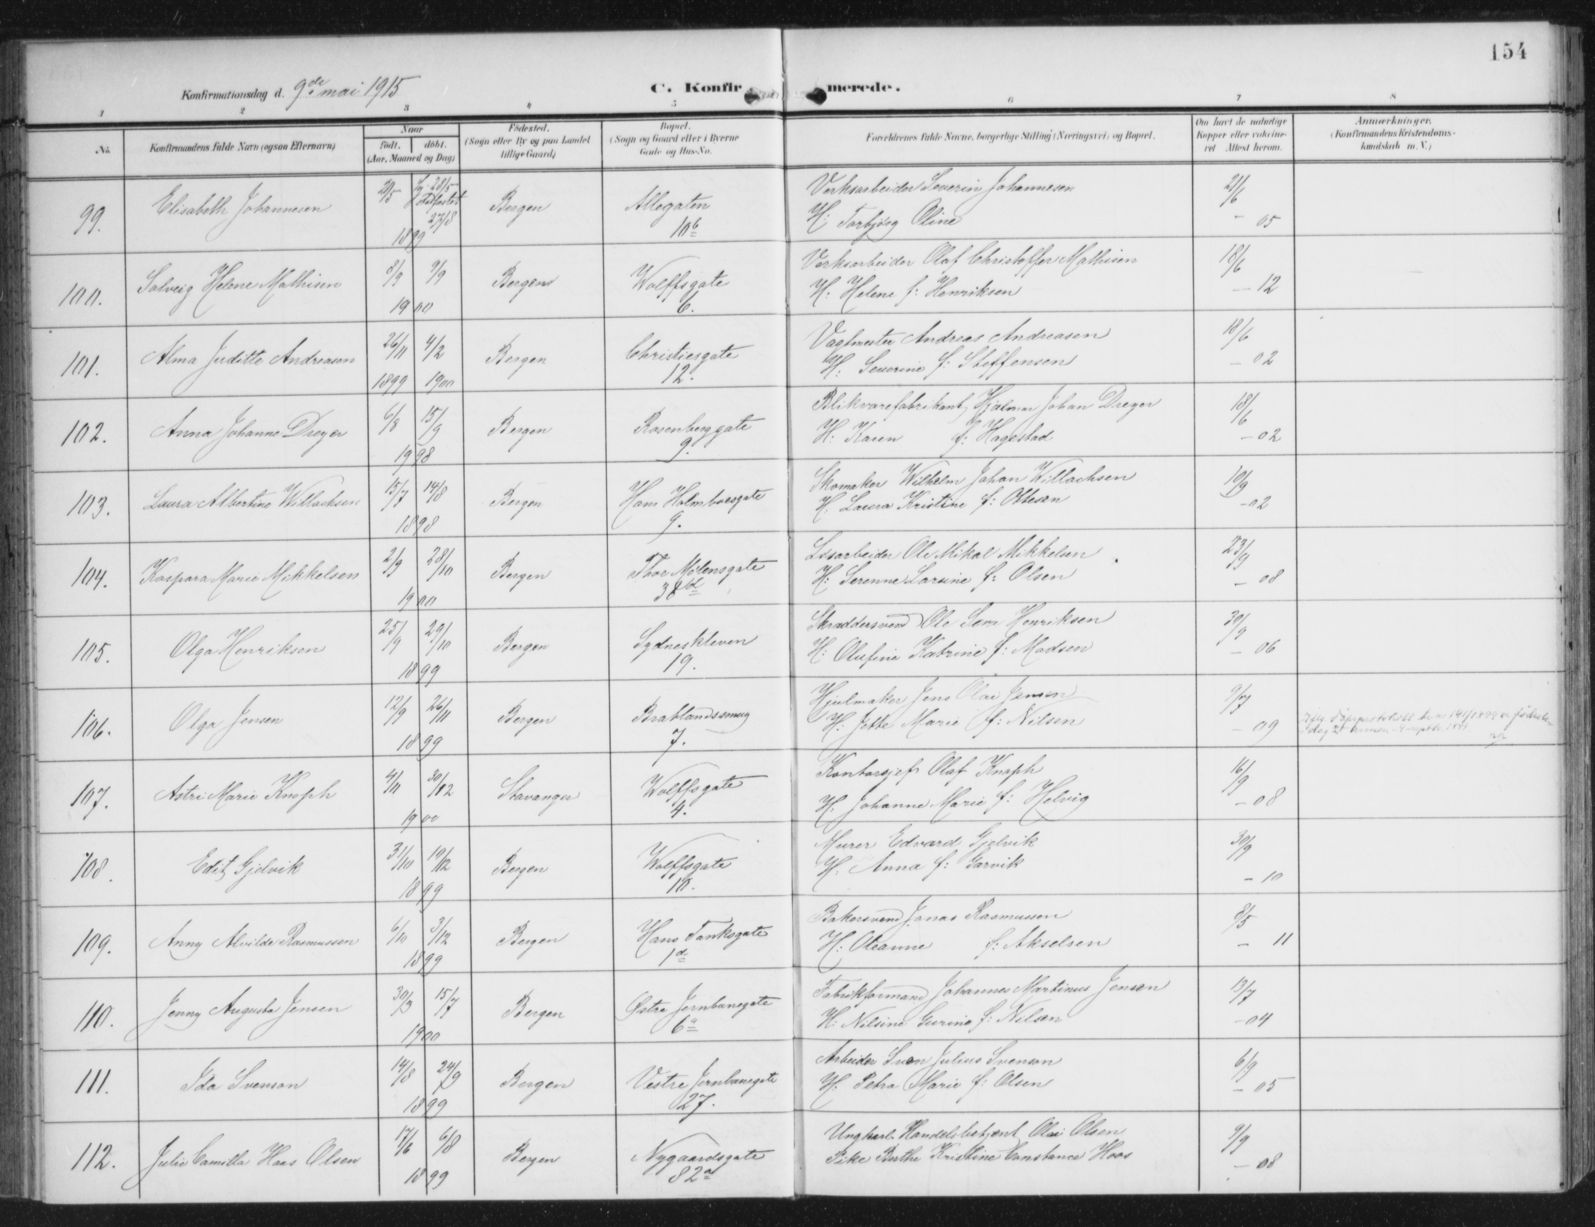 154
Konfirmationsdag d. 9de mai 1915
C. Konfirmerede.
1 2 3 4 5 6 7 8
No.
Konfirmandens fulde Navn (ogsaa Efternavn)
Naar
født. døbt.
(Aar, Maaned og Dag)
Fødested.
(Sogn eller By og paa Landet
tillige Gaard)
Bopæl.
(Sogn og Gaard eller i Byerne
Gade og Hus-No.
Forældrenes fulde Navne, borgerlige Stilling (Næringsvei) og Bopæl.
Om havt de naturlige
Kopper eller vakcine-
ret Attest herom.
Anmærkninger.
(Konfirmandens Kristendoms-
kundskab m. V.)
99. Elisabeth Johannesen 28/5 27/8 1899 Bergen Allegaten 10b
Verksarbeider Severin Johannesen
H: Torbjørg Oline
21/6 - 05
100. Solveig Helene Mathisen 8/3 9/9 1900 Bergen Wolffsgate 6.
Verksarbeider Olaf Christoffer Mathisen
H: Helene f: Henriksen
18/6 - 12
101. Alma Juditte Andreasen 26/11 4/2 1899 1900 Bergen Christiesgate 12.
Vagtmester Andreas Andreasen
H: Severine f: Steffensen
18/6 - 02
102. Anna Johanne Dreyer 6/8 15/9 1998 Bergen Rosenberggate 9.
Blikvarefabrikant Hjalmar Johan Dreyer
H: Karen f: Hagestad
18/6 - 02
103. Laura Albertine Willachsen 15/7 14/8 1898 Bergen Hans Holmboesgate 9.
Skomaker Wilhelm Johan Willachsen
H: Laura Kristine f: Ottesen
19/9 - 02
104. Kaspara Marie Mikkelsen 2/9 28/10 1900 Bergen Thor Møhlensgate 38
Løsarbeider Ole Mikal Mikkelsen
H: Serenne Larsine f: Olsen
23/9 - 08
105. Olga Henriksen 25/9 29/10 1899 Bergen Sydneskleven 19.
Skræddersvend Ole Sem Henriksen
H: Olufine Katrine f: Madsen
30/9 - 06
106. Olga Jensen 12/9 26/11 1899 Bergen Brablandssmug 7.
Hjulmaker Jens Olai Jensen
H: Jette Marie f: Nilsen
9/7 - 09
107. Astri Marie Knoph 4/11 30/12 1900 Stavanger Wolffsgate 4.
Kontorsjef Olaf Knoph
H: Johanne Marie f: Helvig
16/9 - 08
108. Edit Gjelvik 31/10 10/12 1899 Bergen Wolffsgate 10.
Murer Edvard Gjelvik
H. Anna f: Garvik
30/9 - 10
109. Anny Alvilde Rasmussen 6/10 3/12 1899 Bergen Hans Tanksgate 1d
Bakersvend Jonas Rasmussen
H: Oleanne f: Akselsen
8/5 - 11
110. Jenny Augusta Jensen 30/3 15/7 1900 Bergen Østre Jernbanegate 6a
Fabrikformand Johannes Martinus Jensen
H: Nilsine Gurine f: Nilsen
13/7 - 04
111. Ida Svenson 14/8 24/9 1899 Bergen Vestre Jernbanegate 27.
Arbeider Sven Julius Svenson
H: Petra Marie f: Olsen
6/9 - 05
112. Julie Camilla Haas Olsen 17/6 6/8 1899 Bergen Nygaardsgate 82a
Ungkarl Handelsbetjent Olai Olsen
Pike Berthe Kristine Constance Haas
9/9 - 08